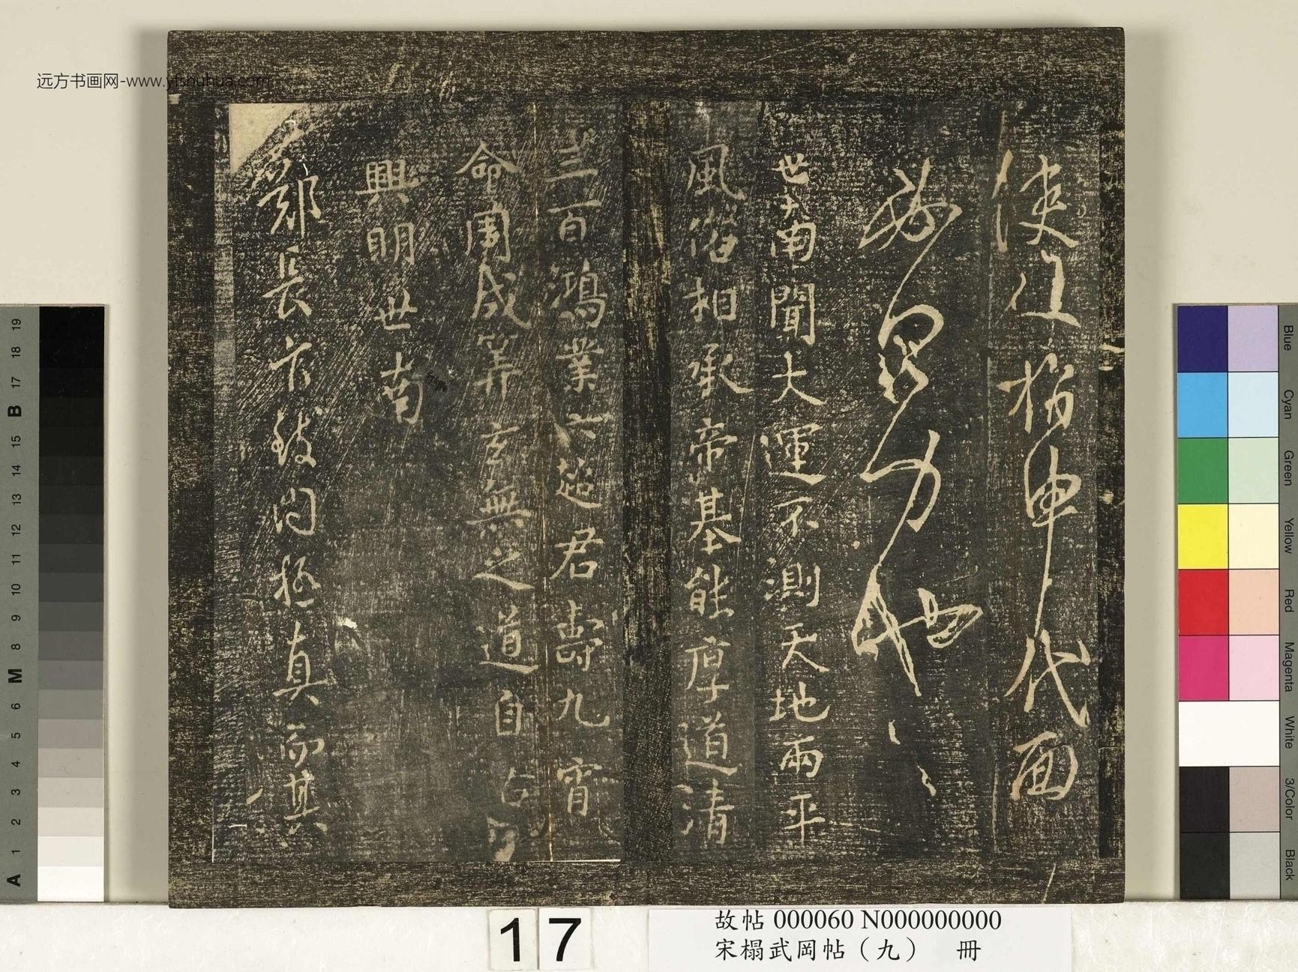 使至猶申代面
努力也
世南聞大運不測天地兩平
風俗相承帝基能厚道清
三百鴻業六超君壽九霄
命周成筭玄無之道自
興明世南
鄭長官致問極真而其
远方书画网-www.yfshuhua.com
17
故帖 000060 N000000000
宋榻武岡帖（九） 冊
19
18
17
B
15
14
13
12
11
10
9
8
M
6
5
4
3
2
1
A
Blue
Cyan
Green
Yellow
Red
Magenta
White
3/Color
Black